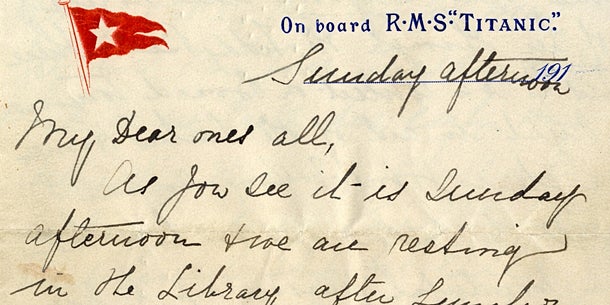 On board R·M·S·"TITANIC".
191
Sunday afternoon
My Dear ones all,
As you see it is Sunday
afternoon & we are resting
in the Library after Luncheon